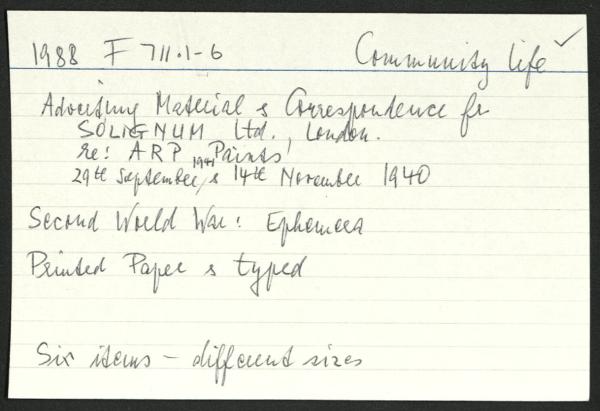 1988 F 711.1-6 Community life ✓
Advertising Material & Correspondence for
SOLIGNUM Ltd., London.
re: ARP Paints'
29th September 1941 & 14th November 1940
Second World War: Ephemera
Printed Paper & typed
Six items - different sizes